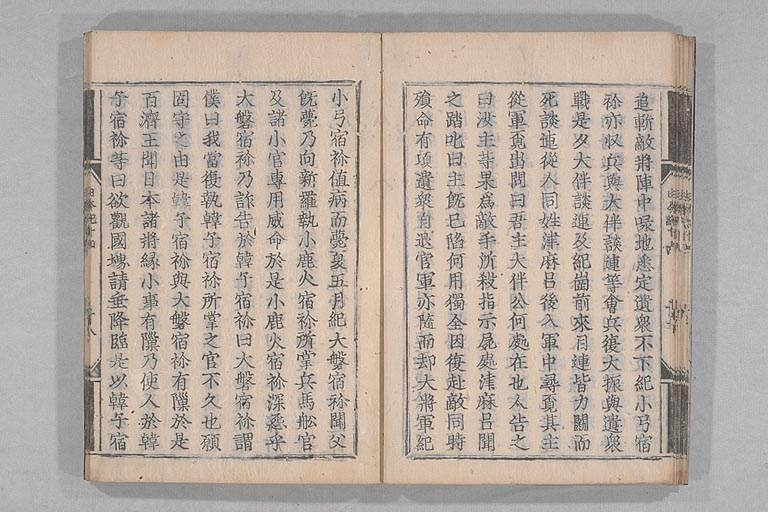 追斬敵將陣中㖪地悉定遺衆不下紀小弓宿
祢亦收兵與大伴談連等會兵復大振與遺衆
戰是夕大伴談連及紀崗前來目連皆力鬪而
死談連從人同姓津麻呂後入軍中尋覓其主
從軍覓出問曰吾主大伴公何處在也人告之
曰汝主等果爲敵手所殺指示屍處津麻呂聞
之踏叱曰主旣已陷何用獨全因復赴敵同時
殞命有頃遺衆自退官軍亦隨而却大將軍紀
小弓宿祢値病而薨夏五月紀大磐宿祢聞父
旣薨乃向新羅執小鹿火宿祢所掌兵馬舩官
及諸小官專用威命於是小鹿火宿祢深怨乎
大磐宿祢乃詐告於韓子宿祢曰大磐宿祢謂
僕曰我當復執韓子宿祢所掌之官不久也願
固守之由是韓子宿祢與大磐宿祢有隙於是
百濟王聞日本諸將緣小事有隙乃使人於韓
子宿祢等曰欲觀國堺請垂降臨是以韓子宿